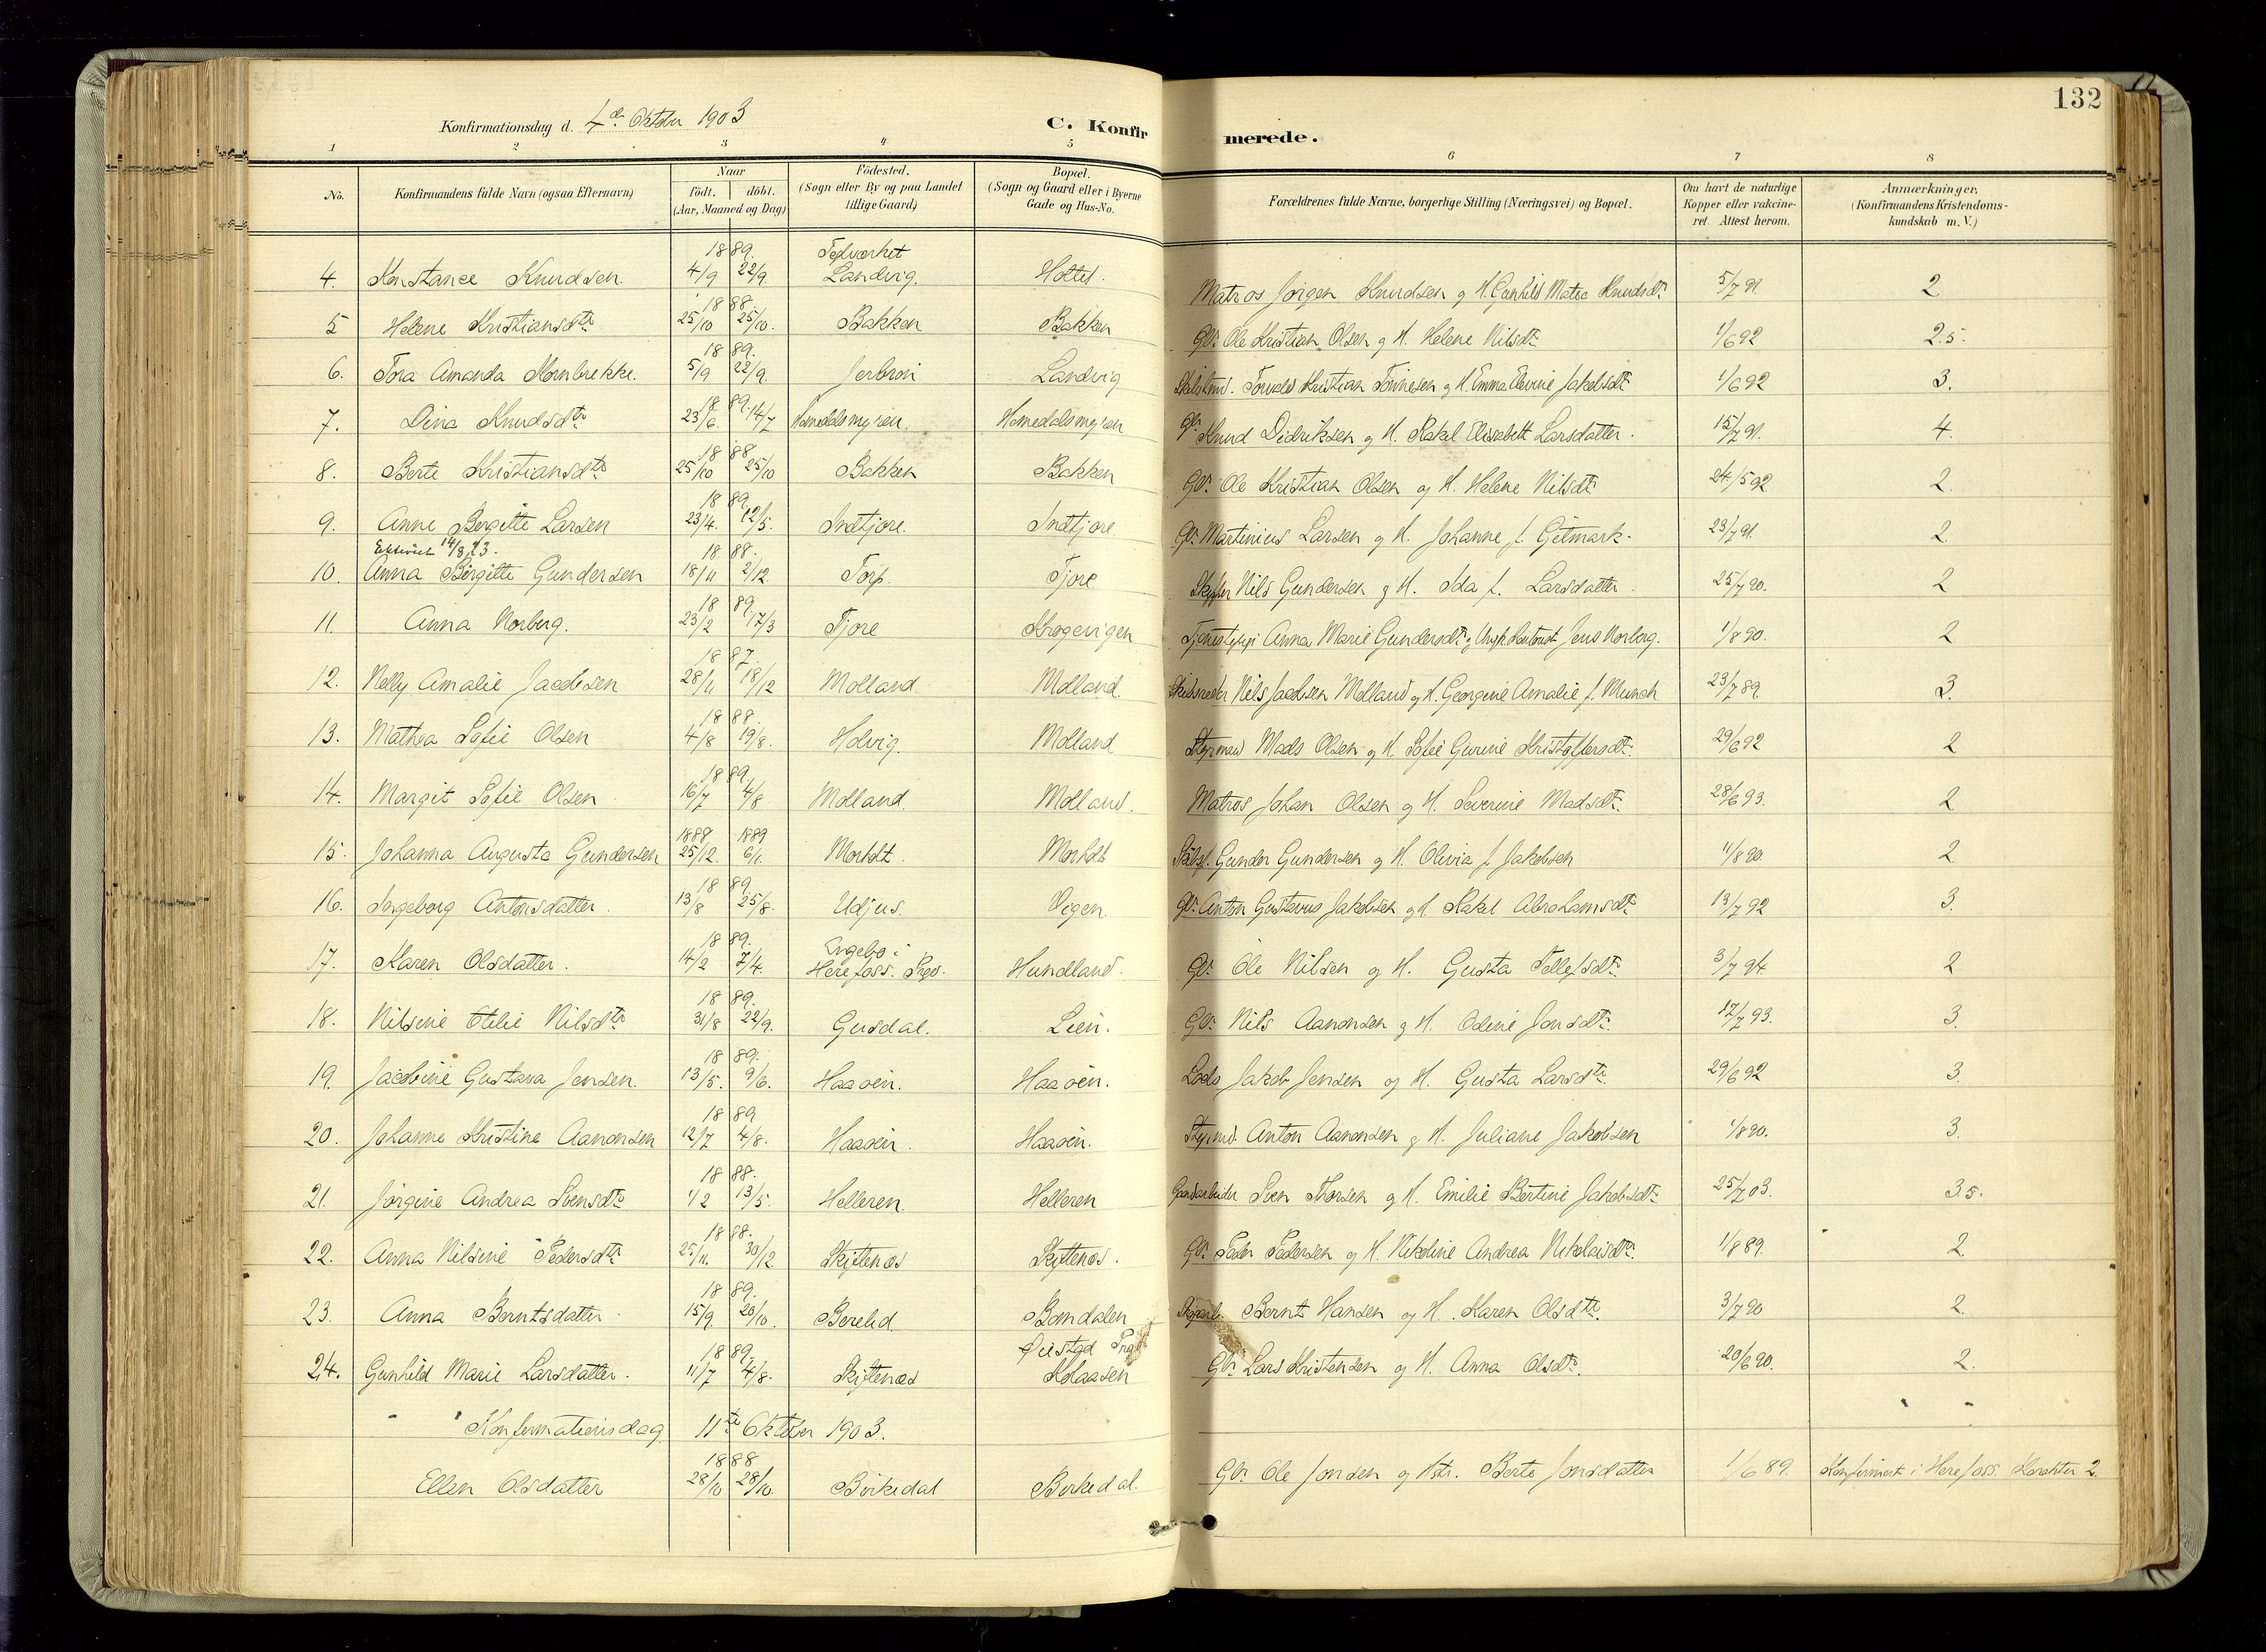 132
Konfirmationsdag d. 4de Oktober 1903
C. Konfirmerede.
1 2 3 4 5 6 7 8
No. Konfirmandens fulde Navn (ogsaa Efternavn) Naar födt. döbt. (Aar, Maaned og Dag) Födested. (Sogn eller By og paa Landet tillige Gaard) Bopæl. (Sogn og Gaard eller i Byerne Gade og Hus-No. Forældrenes fulde Navne, borgerlige Stilling (Næringsvei) og Bopæl. Om havt de naturlige Kopper eller vakcineret. Attest herom. Anmærkninger. (Konfirmandens Kristendomskundskab m. V.)
1889. Teglværket
4. Konstance Knudsen. 4/9 22/9. Landvig. Holtet. Matros Jørgen Knudsen og H. Gunhild Matea Knudsdtr 5/7 91. 2
1888.
5 Helene Kristiansdtr 25/10 25/10. Bakken Bakken Gbr. Ole Kristian Olsen og H. Helene Nilsdtr 1/6 92 2.5.
1889.
6. Tora Amanda Kornbrekke. 5/9 22/9. Jerbron Landvig Kristian Tønnesen og H. Emma Elevine Jakobsdtr 1/6 92 3.
1889.
7. Dina Knudsdtr 23/6 14/7 Homedalsmyren. Homedalsmyren Gbr Knud Didriksen og H. Rakel Elisabett Larsdatter. 15/7 91. 4.
1888
8. Berte Kristiansdtr 25/10 25/10 Bakken Bakken Gbr. Ole Kristian Olsen og H. Helene Nilsdtr 24/5 92 2.
1889
9. Anne Birgitte Larsen 23/4. 12/5. Indtjore. Indtjore Gbr. Martinius Larsen og H. Johanne f. Gitmark. 23/7 91. 2
14/8 23.
1888.
10. Anna Birgitte Gundersen 18/11 2/12. Torp. Tjore Skipper Nils Gundersen og H. Ida f. Larsdatter 25/7 90. 2
1889.
11. Anna Norberg. 23/2 17/3 Tjore Krogevigen Tjenestepige Anna Marie Gundersdtr og Ungk. Jens Norberg. 1/8 90. 2
1887.
12. Nelly Amalie Jacobsen 28/11 18/12 Molland Molland. Skibsreder Nils Jacobsen Molland og H. Georgine Amalie f. Munch 23/7 89. 3.
1888.
13. Mathea Sofie Olsen 4/8 19/8. Holvig. Molland Styrmand Mads Olsen og H. Sofie Gurine Kristoffersdtr. 29/6 92 2
1889.
14. Margit Sofie Olsen 16/7 4/8 Molland. Molland. Matros Johan Olsen og H. Severine Madsdtr. 28/6 93. 2
1888 1889
15. Johanna Augusta Gundersen 25/12. 6/1. Morholt. Morholt Gunder Gundersen og H. Olivia f. Jakobsen 11/8 90. 2
1889.
16. Ingeborg Antonsdatter. 13/8 25/8. Udjus. Vigen. Gbr. Anton Gustavus Jakobsen og H. Rakel Abrahamsdtr. 13/7 92 3.
1889. Engebo i
17. Karen Olsdatter. 14/2 7/4. Herefoss. Præg. Hundland. Gbr. Ole Nilsen og H. Gusta Tellefsdtr. 3/7 94. 2
1889.
18. Nilsine Otelie Nilsdtr 31/8 22/9. Gusdal. Lien. Gbr. Nils Aanonsen og H. Odine Jonsdtr. 12/7 93. 3.
1889.
19. Jacobine Gustava Jensen. 13/5. 9/6. Haaøen. Haaøen. Lods Jakob Jensen og H. Gusta Larsdtr. 29/6 92 3.
1889
20. Johanne Kristine Aanonsen 12/7 4/8. Haaøen. Haaøen. Styrmd. Anton Aanonsen og H. Juliane Jakobsen 1/8 90. 3.
1888.
21. Jørgine Andrea Svensdtr 1/2 13/5. Helleren. Helleren Gaardarbeider Sven Thorsen og H. Emilie Bertine Jakobsdtr. 25/7 03. 3.5.
1888.
22. Anna Nilsine Pedersdtr 25/11. 30/12 Skiftenæs Skiftenæs. Gbr. Peder Pedersen og H. Nikoline Andrea Nikolaisdtr. 1/8 89. 2
1889.
23. Anna Berntsdatter 15/9. 20/10. Berelid. Bomdalen Bernt Hansen og H. Karen Olsdtr. 3/7 90 2.
1889. Øiestad Præg
24. Gunhild Marie Larsdatter. 11/7 4/8. Skiftenæs Klaasen Gbr. Lars Kristensen og H. Anna Olsdtr. 20/6 90. 2.
Konfirmationsdag 11te Oktober 1903.
1888
Ellen Olsdatter 28/10 28/10. Birkedal Birkedal. Gbr. Ole Jonsen og Hstr. Berte Jonsdatter 1/6 89. Konfirmert i Herefoss. Karakter 2.